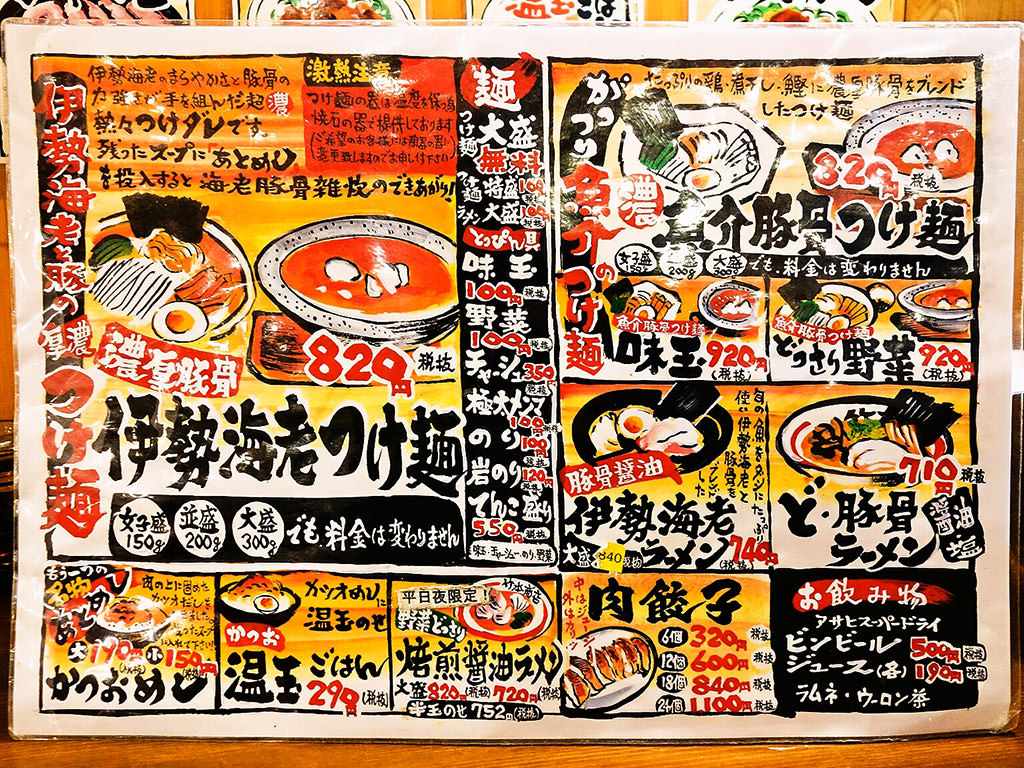 伊勢海老と豚の厚濃つけ麺
伊勢海老のまろやかさと豚骨の
力強さが手を組んだ超濃
熱々つけダレです。
残ったスープに「あとめし」
を投入すると海老豚骨雑炊のできあがり!
激熱注意
つけ麺の器は温度を保つ為
焼石の器で提供しております
ご希望のお客様には普通の器に
変更致しますのでお申し付け下さい
820円 税抜
濃厚豚骨
伊勢海老つけ麺
女子盛 150g
並盛 200g
大盛 300g
でも料金は変わりません
麺
つけ麺 大盛 無料
つけ麺 特盛 100円 税抜
ラーメン 大盛 100円 税抜
とっぴん具
味玉 100円 税抜
野菜 100円 税抜
チャーシュー 350円 税抜
極太メンマ 100円 税抜
のり 100円 税抜
岩のり 120円 税抜
てんこ盛り 550円 税抜
味玉・チャーシュー・のり・野菜
がっつり魚介のつけ麺
たっぷりの鶏・煮干し・鰹に濃厚豚骨をブレンド
したつけ麺
820円 税抜
濃
魚介豚骨つけ麺
女子盛 150g
並盛 200g
大盛 300g
でも、料金は変わりません
魚介豚骨つけ麺
味玉 920円 (税抜)
魚介豚骨つけ麺
どっさり野菜 920円 (税抜)
豚骨醤油
伊勢海老
ラーメン 740円 (税抜)
大盛 840円 税抜
旬の魚をダシにたっぷり
使い伊勢海老と
豚骨を
ブレンドした
710円 税抜
ど・豚骨
ラーメン
醤油
塩
肉の上に固めた
カツオだしを
大 190円 (税抜) 小 150円 (税抜)
かつおめし
カツオめしに
温玉のせ
かつお
温玉ごはん
290円 (税抜)
平日夜限定!
野菜どっさり
焙煎醤油ラーメン
大盛 820円 (税抜) 720円 (税抜)
半玉のせ 752円 (税抜)
肉餃子
中はジューシー
外はカリッ
6個 320円 税抜
12個 600円 税抜
18個 840円 税抜
24個 1100円 税抜
お飲み物
アサヒスーパードライ
ビンビール 500円 税抜
ジュース(各) 190円 税抜
ラムネ・ウーロン茶